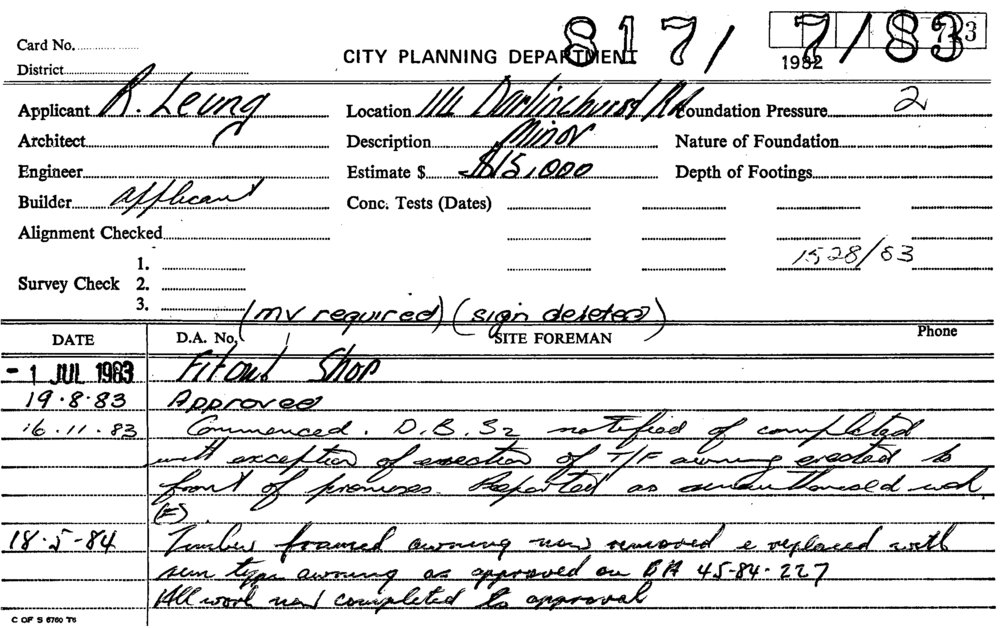 817/ 7/83
Card No.
District
CITY PLANNING DEPARTMENT
1982
Applicant R. Leung Location 111c Darlinghurst Rd Foundation Pressure 2
Architect Description Minor Nature of Foundation
Engineer Estimate $ $15,000 Depth of Footings
Builder applicant Conc. Tests (Dates)
Alignment Checked
1528/83
Survey Check 1. 2. 3.
(mv required) (sign deleted)
DATE D.A. No. SITE FOREMAN Phone
- 1 JUL 1983 Fitout Shop
19.8.83 Approved
16.11.83 Commenced. D.B.S2 notified of completed
with exception of erection of T/F awning erected to
front of premises. Reported as unauthorised work
(E).
18.5-84 Timber framed awning now removed & replaced with
type awning as approved on BA 45-84-227
All work now completed to approval
C OF S 6760 T6